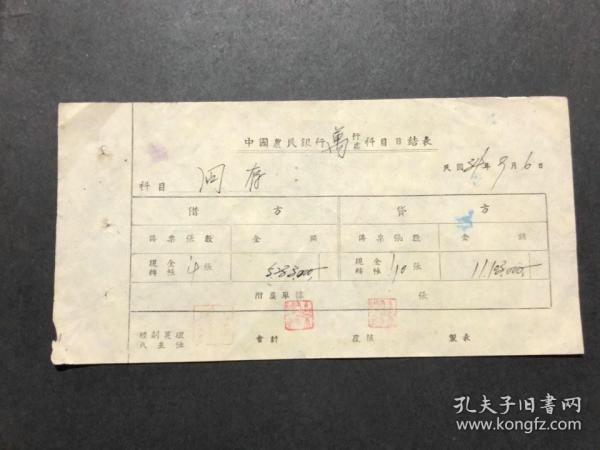 中國農民銀行萬行處科目日結表
民國 年9月6日
科目 同存
借方 貸方
傳票張數 金額 傳票張數 金額
現金 轉帳 4張 現金 轉帳 10張
附屬單據 張
經副襄理 或主任 會計 覆核 製表
孔夫子旧書网
www.kongfz.com